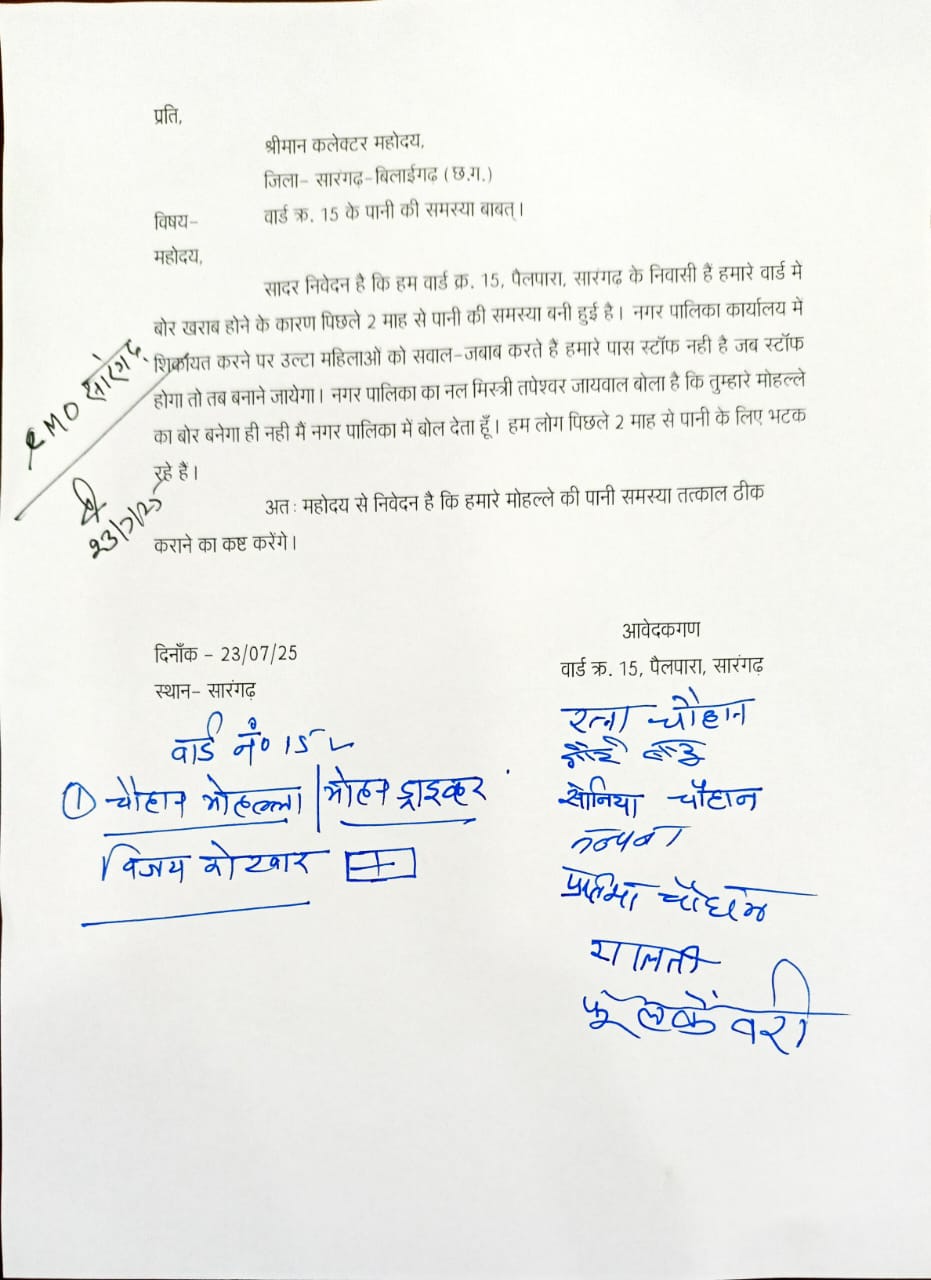 प्रति,
श्रीमान कलेक्टर महोदय,
जिला- सारंगढ़-बिलाईगढ़ (छ.ग.)
विषय- वार्ड क्र. 15 के पानी की समस्या बाबत्।
महोदय,
सादर निवेदन है कि हम वार्ड क्र. 15, पैलपारा, सारंगढ़ के निवासी हैं हमारे वार्ड मे
बोर खराब होने के कारण पिछले 2 माह से पानी की समस्या बनी हुई है। नगर पालिका कार्यालय में
शिकायत करने पर उल्टा महिलाओं को सवाल-जबाब करते हैं हमारे पास स्टॉफ नही है जब स्टॉफ
होगा तो तब बनाने जायेगा। नगर पालिका का नल मिस्त्री तपेश्वर जायवाल बोला है कि तुम्हारे मोहल्ले
का बोर बनेगा ही नही मैं नगर पालिका में बोल देता हूँ। हम लोग पिछले 2 माह से पानी के लिए भटक
रहे हैं।
अतः महोदय से निवेदन है कि हमारे मोहल्ले की पानी समस्या तत्काल ठीक
कराने का कष्ट करेंगे।
CMO सारंगढ़
23/7/25
दिनाँक - 23/07/25
स्थान- सारंगढ़
वार्ड नं० 15
① चौहान मोहल्ला / मोहन ड्राइवर
विजय
आवेदकगण
वार्ड क्र. 15, पैलपारा, सारंगढ़
रत्ना चौहान
सोनिया चौहान
चौहान
मालती
फूलकँवरी